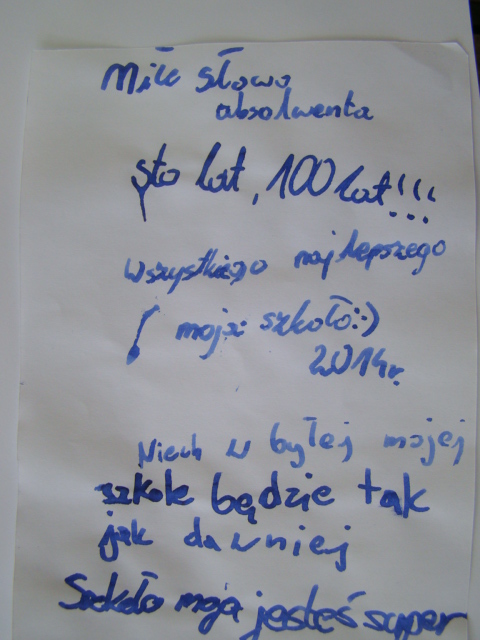 Miłe słowo
absolwenta
sto lat, 100 lat!!!
wszystkiego najlepszego
! moja szkoło:)
2014r.
Niech w byłej mojej
szkole będzie tak
jak dawniej
Szkoło moja jesteś super